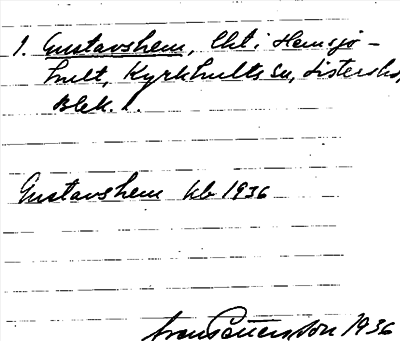 1. Gustavshem, lht i Hemsjö-
hult, Kyrkhults sn, Listers hd,
Blek.
Gustavshem kb 1936
Sven Pettersson 1936